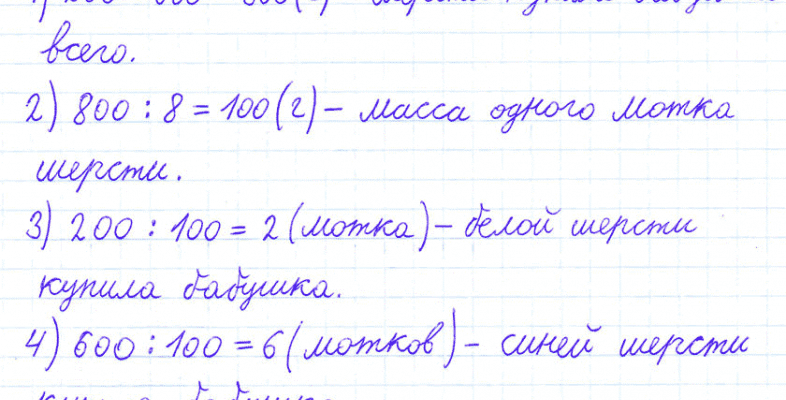 всего.
2) 800 : 8 = 100 (г) – масса одного мотка
шерсти.
3) 200 : 100 = 2 (мотка) – белой шерсти
купила бабушка.
4) 600 : 100 = 6 (мотков) – синей шерсти
купила бабушка.